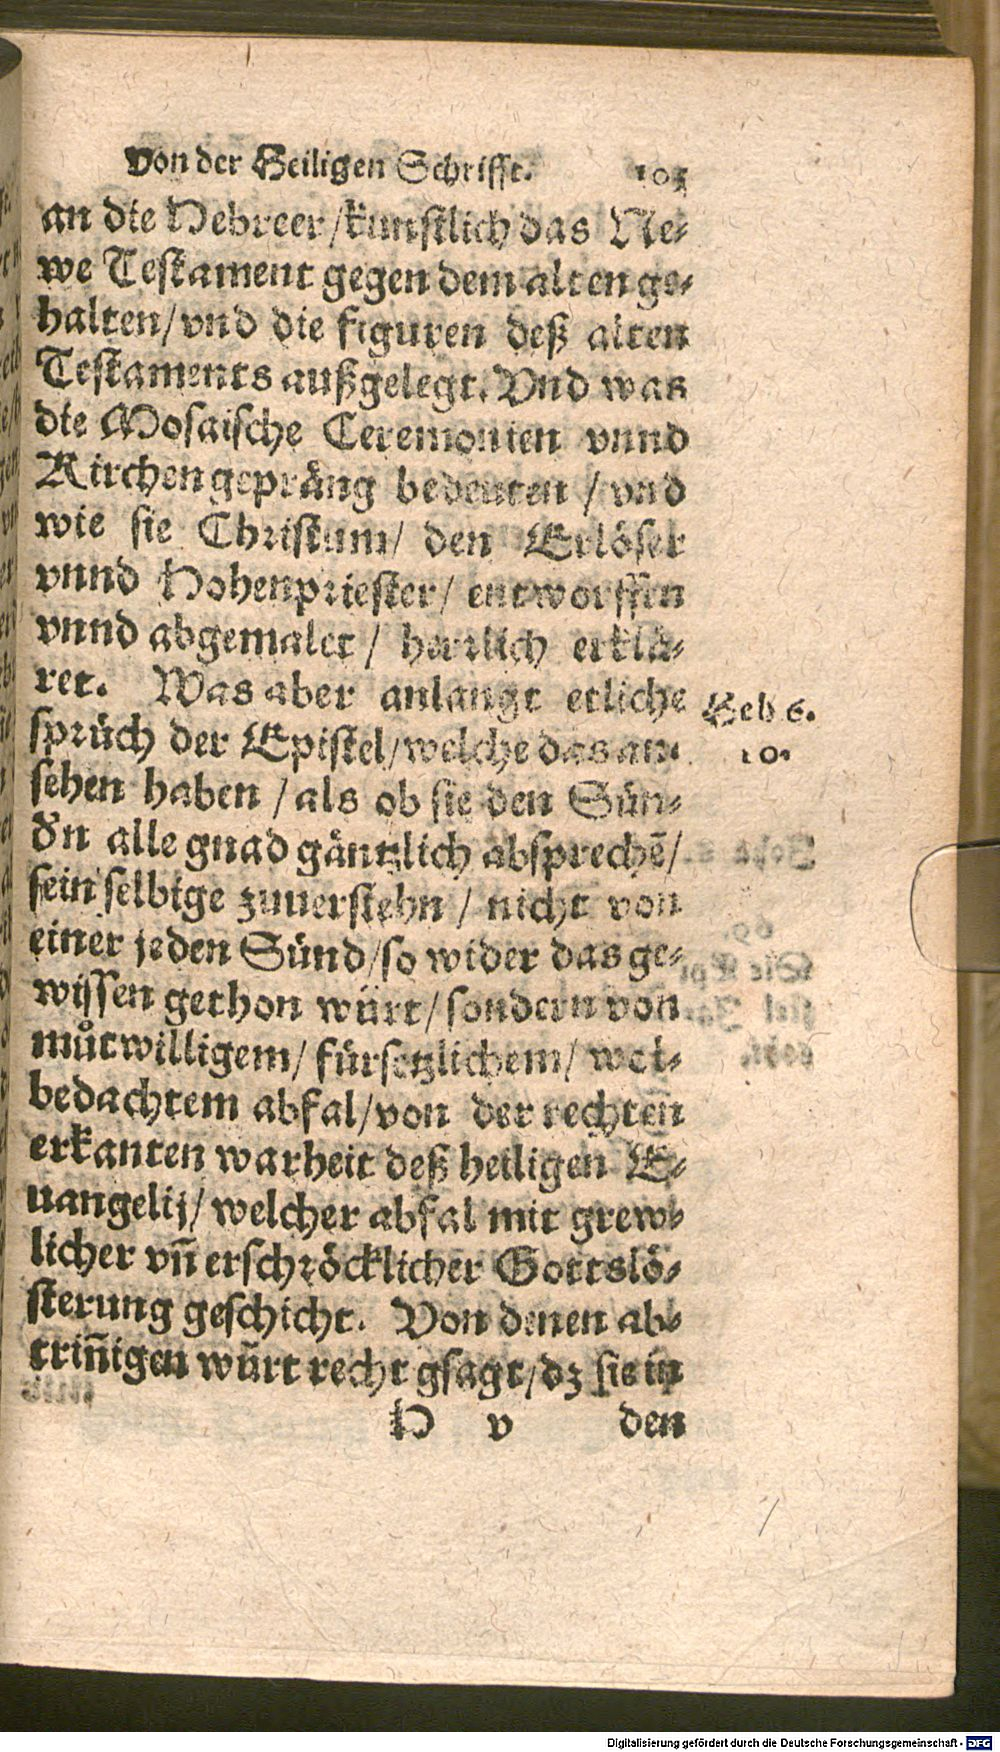 von der Heiligen Schrifft. 103
an die Hebreer/künstlich das Ne-
we Testament gegen dem alten ge-
halten/vnd die figuren deß alten
Testaments außgelegt. Vnd was
die Mosaische Ceremonien vnnd
Kirchengepräng bedeuten / vnd
wie sie Christum/ den Erlöser
vnnd Hohenpriester/ entworffen
vnnd abgemalet / herrlich erklä-
ret. Was aber anlangt etliche
Heb 6.
sprüch der Epistel/welche das an-
10.
sehen haben / als ob sie den Sün-
dn alle gnad gäntzlich absprechẽ/
sein selbige zuuerstehn / nicht von
einer jeden Sünd/so wider das ge-
wissen gethon würt/sondern von
můtwilligem/ fürsetzlichem/ wol-
bedachtem abfal/von der rechten
erkanten warheit deß heiligen E-
uangelij/welcher abfal mit grew-
licher vñ erschröcklicher Gottslö-
sterung geschicht. Von denen ab-
triñigen würt recht gsagt/dz sie in
H v den
Digitalisierung gefördert durch die Deutsche Forschungsgemeinschaft - DFG